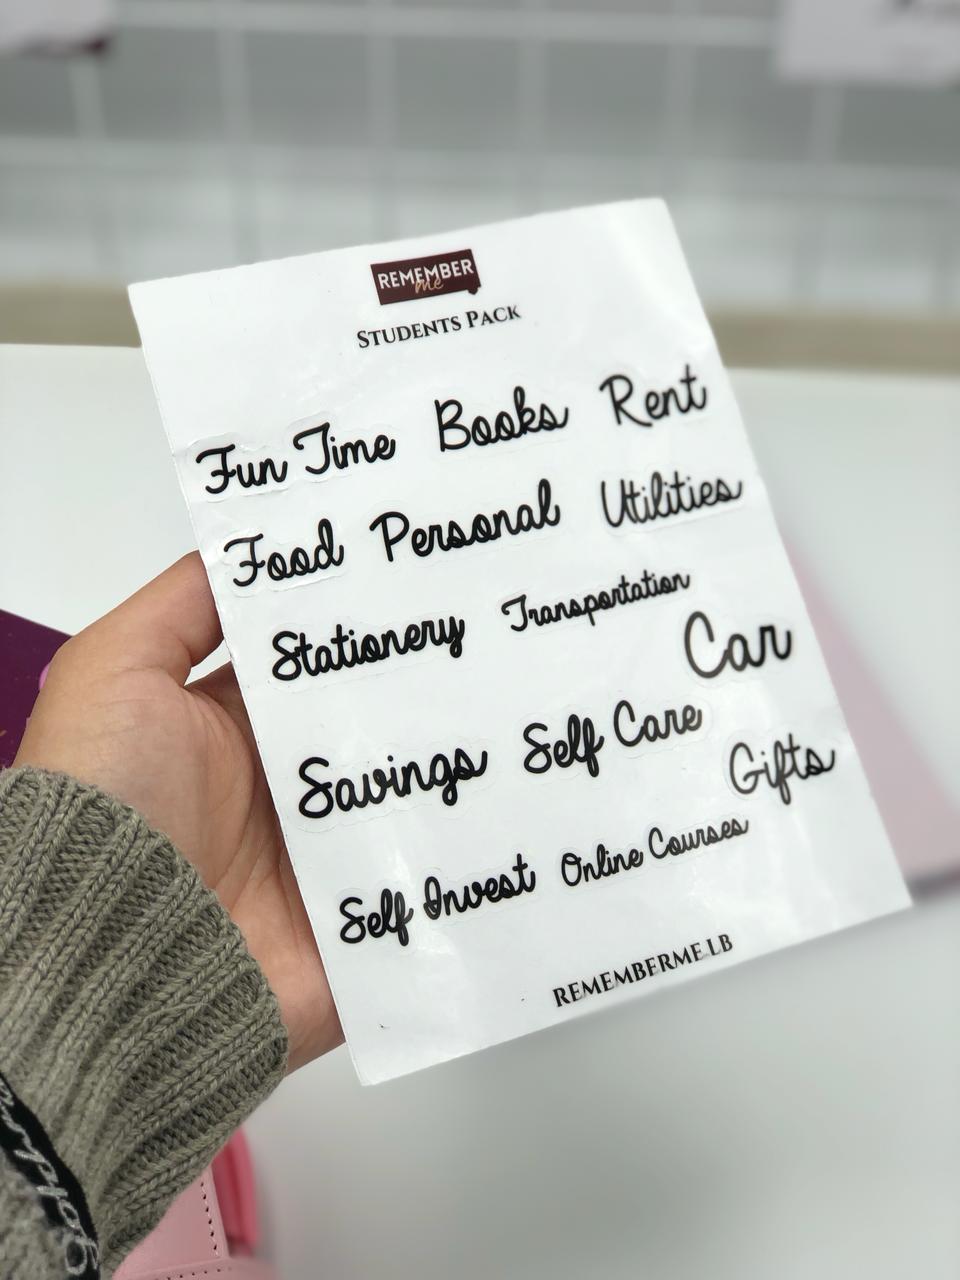 REMEMBER
me
STUDENTS PACK
Fun Time Books Rent
Food Personal Utilities
Stationery Transportation
Car
Savings Self Care
Gifts
Self Invest Online Courses
REMEMBERME LB